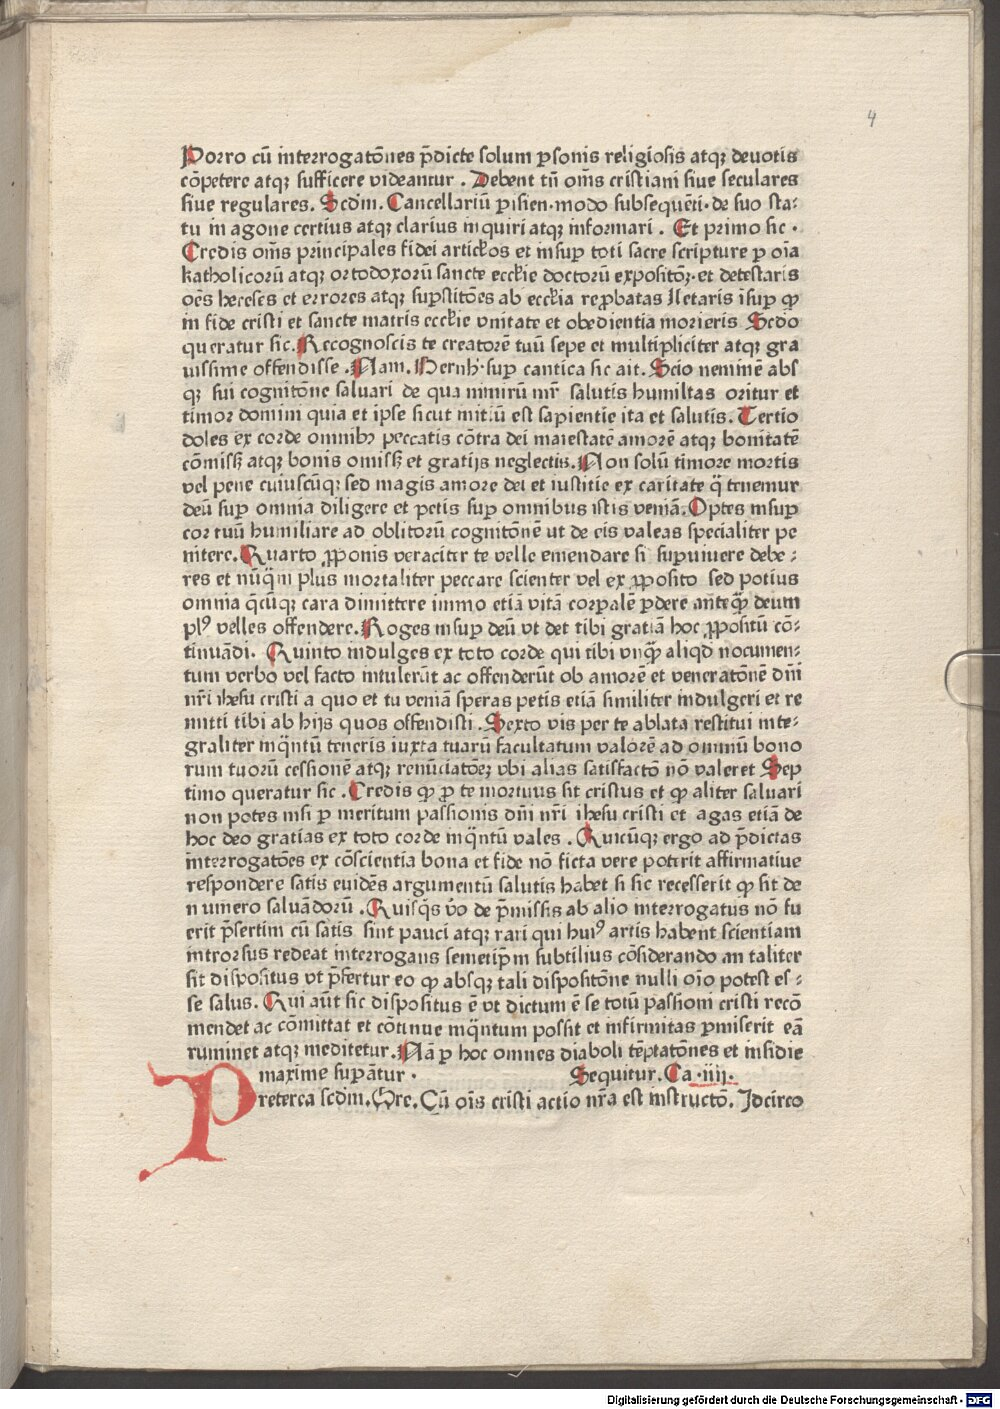 4
Porro cū interrogatōnes p̄dicte solum ꝑsonis religiosis atqꝫ deuotis
cōpetere atqꝫ sufficere videantur . Debent tn̄ om̄s cristiani siue seculares
siue regulares. Scdm̄. Cancellariū ꝑisien·modo subsequēti·de suo sta⸗
tu in agone certius atqꝫ clarius inquiri atqꝫ informari . Et primo sic ·
Credis om̄s principales fidei articłos et insuꝑ toti sacre scripture ꝑ oīa
katholicorū atqꝫ ortodoxorū sancte eccłie doctorū expositōꝝ·et detestaris
oēs hereses et errores atqꝫ suꝑstitōes ab eccłia reꝓbatas Letaris īsuꝑ ꝙ
in fide cristi et sancte matris eccłie vnitate et obedientia morieris Scdo
queratur sic. Recognoscis te creatorē tuū sepe et multipliciter atqꝫ gra
uissime offendisse . Nam. Bernh̓·suꝑ cantica sic ait. Scio neminē abs
qꝫ sui cognitōne saluari de qua nimirū mr̄ salutis humiltas oritur et
timor domini quia et ipse sicut initiū est sapientie ita et salutis. Tertio
doles ex corde omnibꝫ peccatis cōtra dei maiestatē amorē atqꝫ bonitatē
cōmissꝫ atqꝫ bonis omissꝫ et gratijs neglectis. Non solū timore mortis
vel pene cuiuscūqꝫ sed magis amore dei et iustitie ex caritate q̄ tenemur
deū suꝑ omnia diligere et petis suꝑ omnibus istis veniā. Optes insuꝑ
cor tuū humiliare ad oblitorū cognitōnē ut de eis valeas specialiter pe
nitere. Quarto ꝓponis veraciter te velle emendare si suꝑuiuere debe⸗
res et nūq̄m plus mortaliter peccare scienter vel ex ꝓposito sed potius
omnia q̄cūqꝫ cara dimittere immo etiā vitā corꝑalē ꝑdere anteꝙ̄ deum
plꝰ velles offendere. Roges insuꝑ deū vt det tibi gratiā hoc ꝓpositū cō⸗
tinuādi. Quinto indulges ex toto corde qui tibi vnꝙ̄ aliqd̄ nocumen⸗
tum verbo vel facto intulerūt ac offenderūt ob amorē et veneratōnē dn̄i
nr̄i ihesu cristi a quo et tu veniā speras petis etiā similiter indulgeri et re
mitti tibi ab hijs quos offendisti . Sexto vis per te ablata restitui inte⸗
graliter inq̄ntū teneris iuxta tuarū facultatum valorē ad omniū bono
rum tuorū cessionē atqꝫ renūciatōēꝫ vbi alias satisfactō nō valeret Sep
timo queratur sic . Credis ꝙ ꝓ te mortuus sit cristus et ꝙ aliter saluari
non potes nisi ꝑ meritum passionis dn̄i nr̄i ihesu cristi et agas etiā de
hoc deo gratias ex toto corde inq̄ntū vales . Quicūqꝫ ergo ad p̄dictas
interrogatōes ex cōscientia bona et fide nō ficta vere poterit affirmatiue
respondere satis euidēs argumentū salutis habet si sic recesserit ꝙ sit de
numero saluādorū . Quisq̄s v̄o de p̄missis ab alio interrogatus nō fu
erit p̄sertim cū satis sint pauci atqꝫ rari qui huiꝰ artis habent scientiam
introrsus redeat interrogans semetip̄m subtilius cōsiderando an taliter
sit dispositus vt p̄fertur eo ꝙ absqꝫ tali dispositōne nulli oīo potest es⸗
se salus. Qui aūt sic dispositus ē vt dictum ē se totū passioni cristi recō
mendet ac cōmittat et cōtinue inq̄ntum possit et infirmitas ꝑmiserit eā
ruminet atqꝫ meditetur. Nā ꝑ hoc omnes diaboli tēptatōnes et insidie
maxime suꝑātur . Sequitur. Ca ·iiij·
Preterea scdm̄. Gre. Cū oīs cristi actio nr̄a est instructō. Idcirco
Digitalisierung gefördert durch die Deutsche Forschungsgemeinschaft - DFG